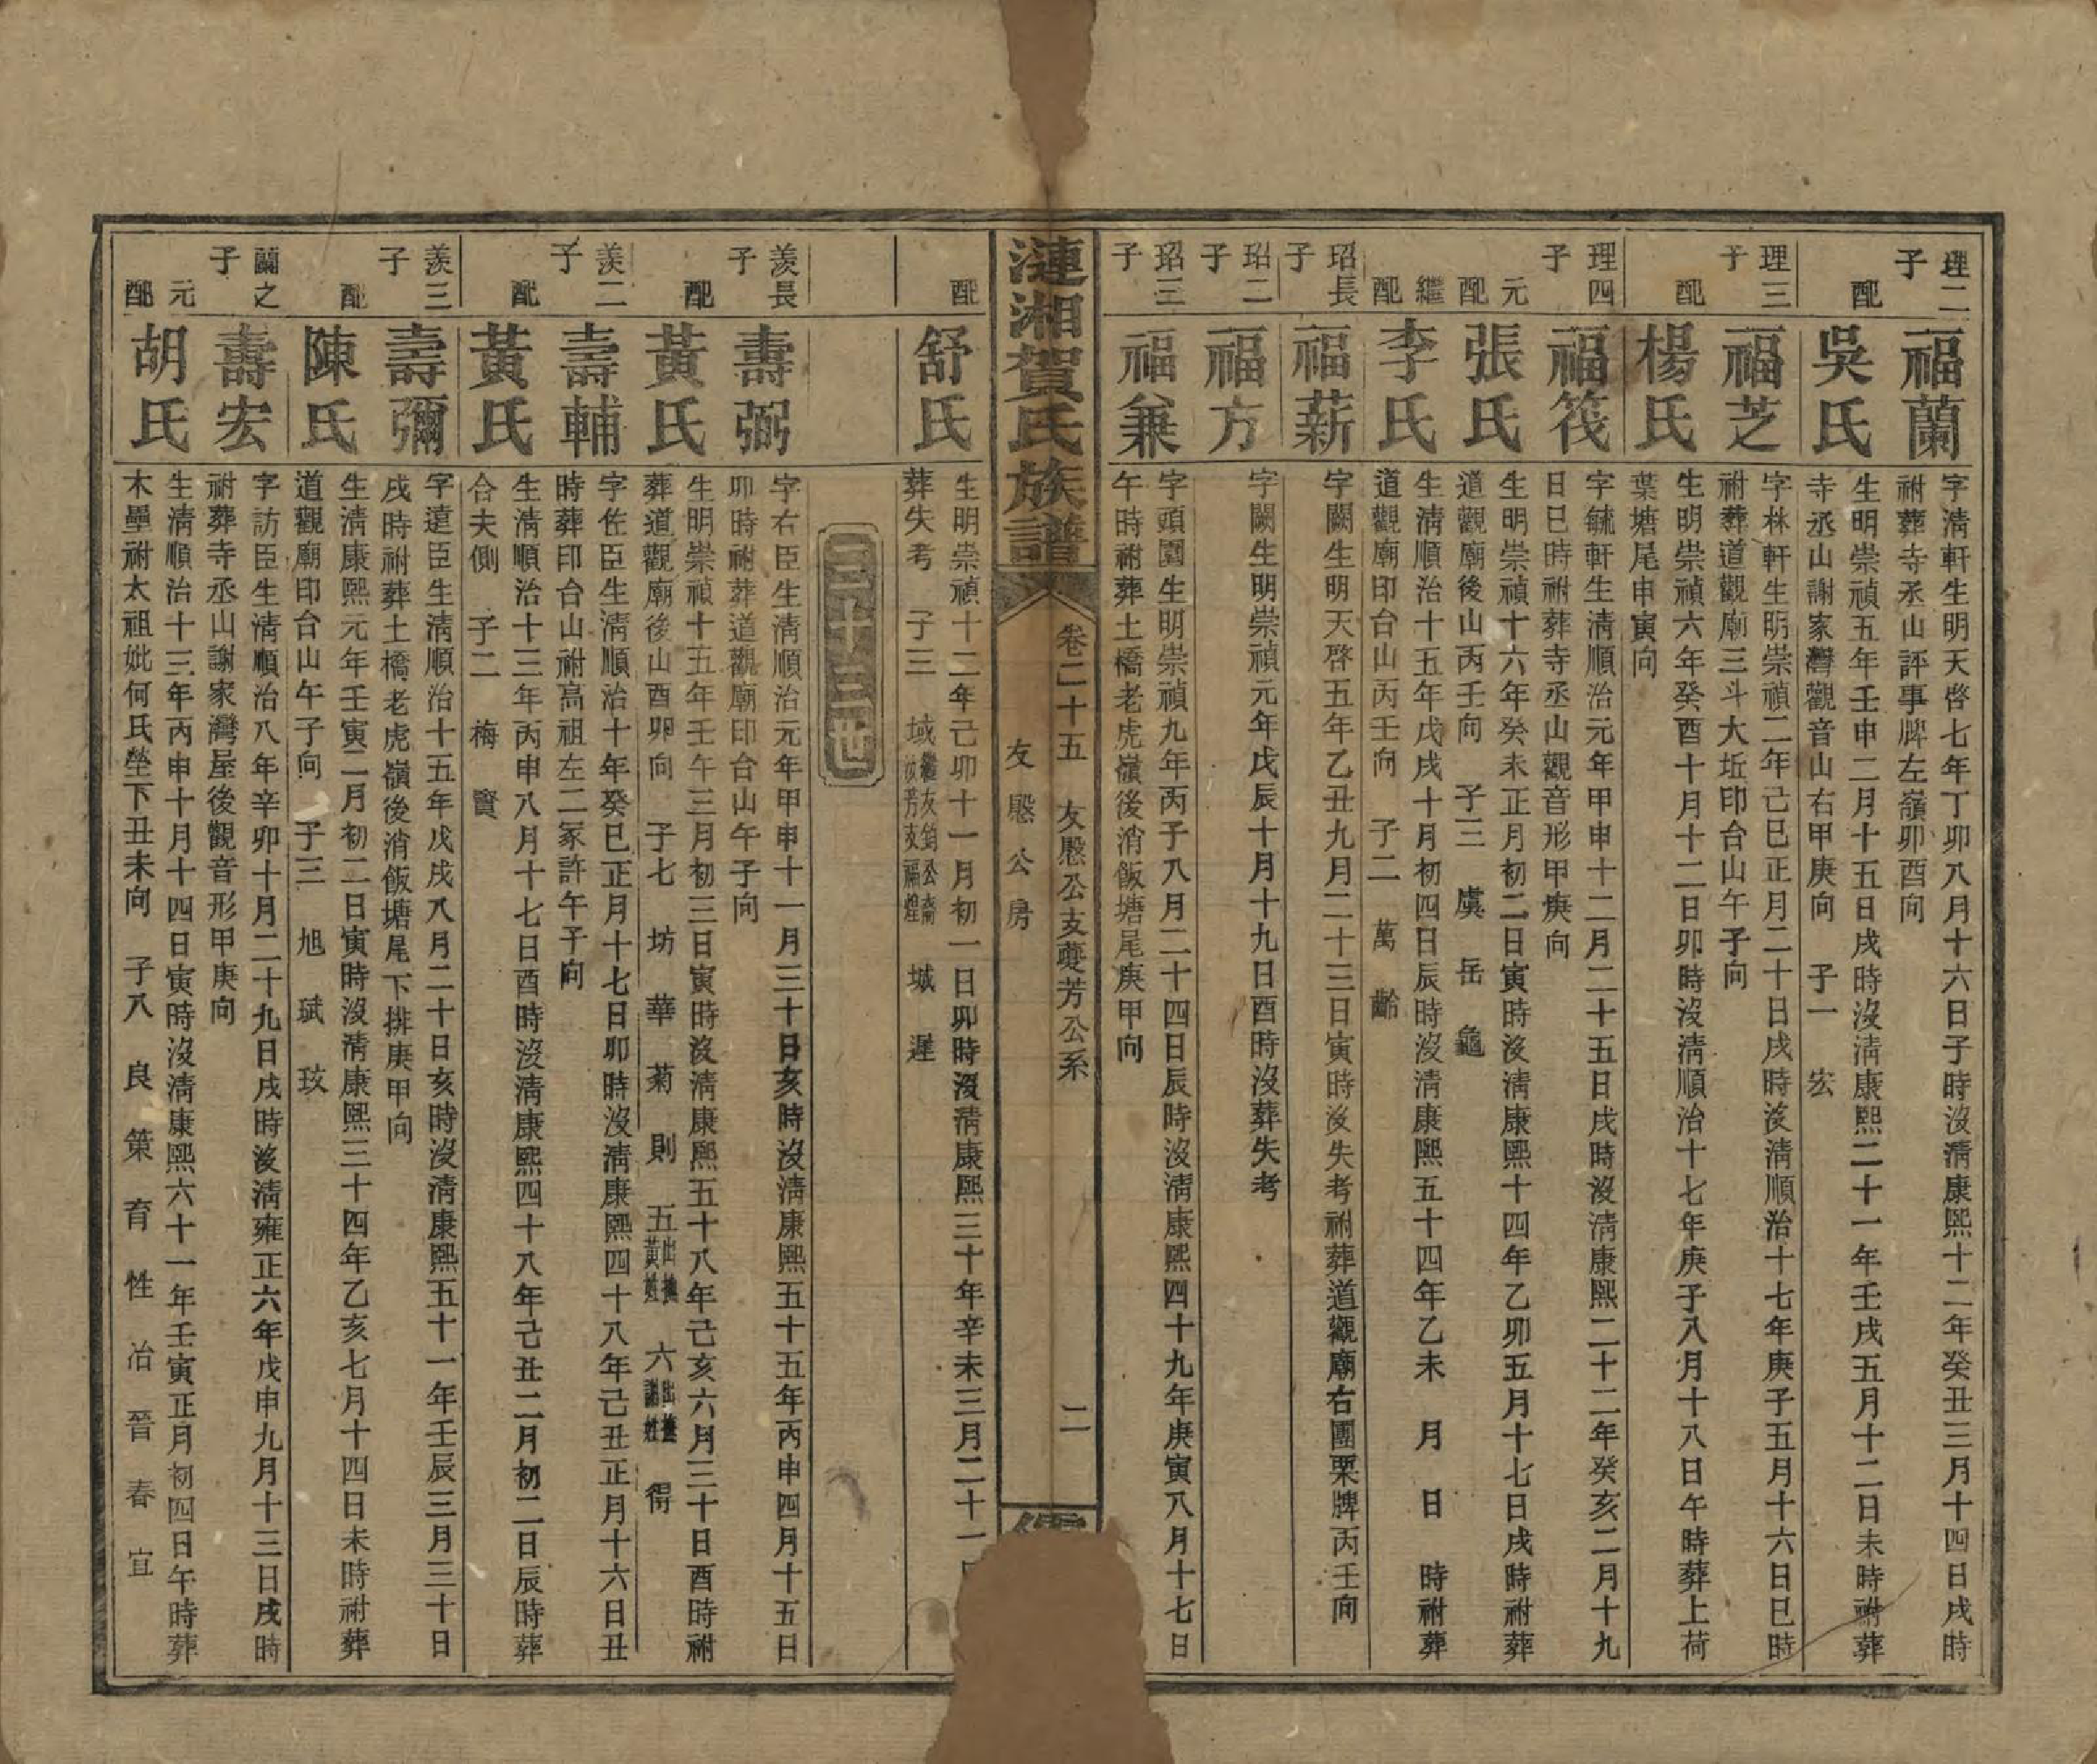 理二子
福蘭
字清軒生明天啓七年丁卯八月十六日子時沒清康熙十二年癸丑三月十四日戌時
祔葬寺丞山評事牌左嶺卯酉向
配
吳氏
生明崇禎五年壬申二月十五日戌時沒清康熙二十一年壬戌五月十二日未時祔葬
寺丞山謝家灣觀音山右甲庚向 子一 宏
理三子
福芝
字林軒生明崇禎二年己巳正月二十日戌時沒清順治十七年庚子五月十六日巳時
祔葬道觀廟三斗大坵印台山午子向
配
楊氏
生明崇禎六年癸酉十月十二日卯時沒清順治十七年庚子八月十八日午時葬上荷
葉塘尾申寅向
理四子
福筏
字毓軒生清順治元年甲申十二月二十五日戌時沒清康熙二十二年癸亥二月十九
日巳時祔葬寺丞山觀音形甲庚向
元配
張氏
生明崇禎十六年癸未正月初二日寅時沒清康熙十四年乙卯五月十七日戌時祔葬
道觀廟後山丙壬向 子三 虞 岳 龜
繼配
李氏
生清順治十五年戊戌十月初四日辰時沒清康熙五十四年乙未 月 日 時祔葬
道觀廟印台山丙壬向 子二 萬 齡
玿長子
福薪
字闕生明天啓五年乙丑九月二十三日寅時沒失考祔葬道觀廟右團栗牌丙壬向
玿二子
福方
字闕生明崇禎元年戊辰十月十九日酉時沒葬失考
玿三子
福兼
字頭園生明崇禎九年丙子八月二十四日辰時沒清康熙四十九年庚寅八月十七日
午時祔葬土橋老虎嶺後消飯塘尾庚甲向
漣湘賀氏族譜
卷二十五 友愍公支蘷芳公系 二
友愍公房
配
舒氏
生明崇禎十二年己卯十一月初一日卯時沒清康熙三十年辛未三月二十一
葬失考 子三 域繼友鈞公裔 芳支福煌 城 遲
三十三世
羨長子
壽弼
字右臣生清順治元年甲申十一月三十日亥時沒清康熙五十五年丙申四月十五日
卯時祔葬道觀廟印台山午子向
配
黃氏
生明崇禎十五年壬午三月初三日寅時沒清康熙五十八年己亥六月三十日酉時祔
葬道觀廟後山酉卯向 子七 坊 華 菊 則 五出撫黃姓 六出撫謝姓 得
羨二子
壽輔
字佐臣生清順治十年癸巳正月十七日卯時沒清康熙四十八年己丑正月十六日丑
時葬印台山祔高祖左二冢許午子向
配
黃氏
生清順治十三年丙申八月十七日酉時沒清康熙四十八年己丑二月初二日辰時葬
合夫側 子二 梅 賢
羨三子
壽彌
字遠臣生清順治十五年戊戌八月二十日亥時沒清康熙五十一年壬辰三月三十日
戌時祔葬土橋老虎嶺後消飯塘尾下排庚甲向
配
陳氏
生清康熙元年壬寅二月初二日寅時沒清康熙三十四年乙亥七月十四日未時祔葬
道觀廟印台山午子向 子三 旭 珷 玫
蘭之子
壽宏
字訪臣生清順治八年辛卯十月二十九日戌時沒清雍正六年戊申九月十三日戌時
祔葬寺丞山謝家灣屋後觀音形甲庚向
元配
胡氏
生清順治十三年丙申十月十四日寅時沒清康熙六十一年壬寅正月初四日午時葬
木壘祔太祖妣何氏塋下丑未向 子八 良 策 育 性 冶 晉 春 宜